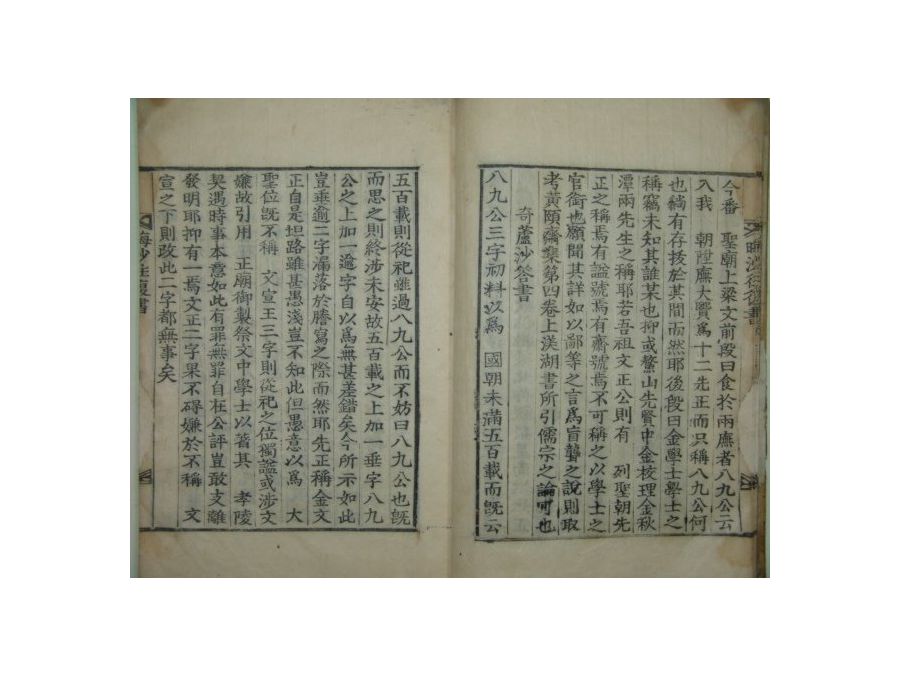 今番 聖廟上梁文前段曰食於兩廡者八九公云
入我 朝陞廡大賢爲十二先正而只稱八九公何
也躺有存拔於其間而然耶後段曰金學士學士之
稱竊未知其誰某也抑或鰲山先賢中金校理金秋
潭兩先生之稱耶若吾祖文正公則有 列聖朝先
正之稱焉有諡號焉有齋號焉不可稱之以學士之
官銜也願聞其詳如以鄙等之言爲盲聾之說則取
考黃頤齋集第四卷上渼湖書所引儒宗之論可也
奇蘆沙答書
八九公三字初料以爲 國朝未滿五百載而旣云
五百載則從祀雖過八九公而不妨曰八九公也旣
而思之則終涉未安故五百載之上加一垂字八九
公之上加一逾字自以爲無甚差錯矣今所示如此
豈垂逾二字漏落於謄寫之際而然耶先正稱金文
正自是坦路雖甚愚淺豈不知此但愚意以爲 大
聖位旣不稱 文宣王三字則從祀之位獨諡或涉文
嫌故引用 正廟御製祭文中學士以著其 孝陵
契遇時事本意如此有罪無罪自在公評豈敢支離
發明耶抑有一焉文正二字果不碍嫌於不稱 文
宣之下則改此二字都無事矣